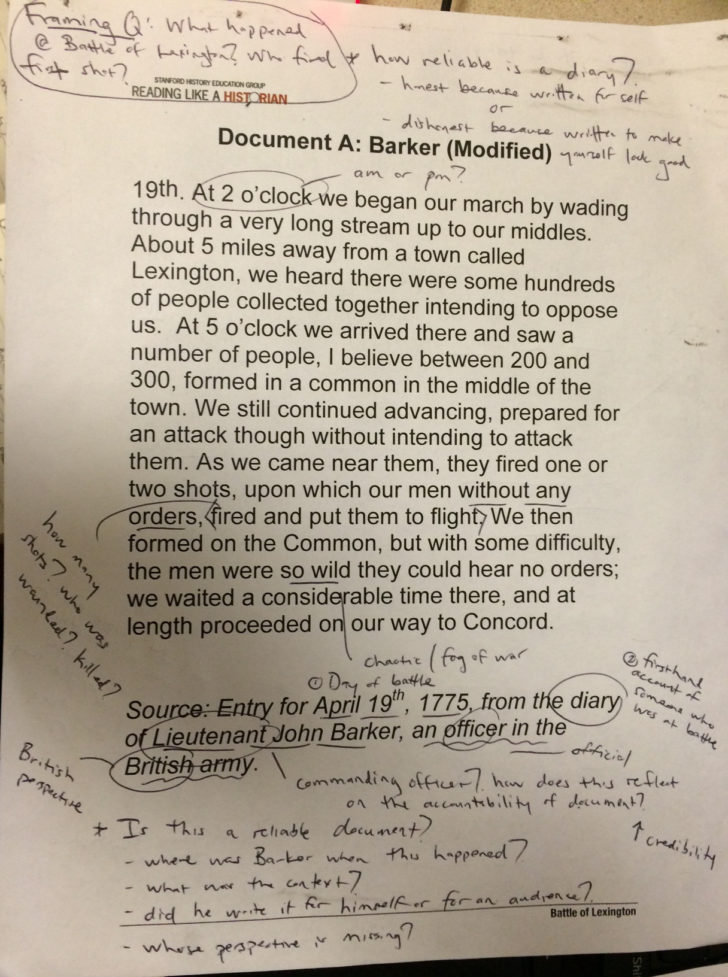 Framing Q: What happened
@ Battle of Lexington? Who fired
first shot?
* how reliable is a diary?
- honest because written for self
or
- dishonest because written to make
yourself look good
STANFORD HISTORY EDUCATION GROUP
READING LIKE A HISTORIAN
Document A: Barker (Modified)
am or pm?
19th. At 2 o'clock we began our march by wading
through a very long stream up to our middles.
About 5 miles away from a town called
Lexington, we heard there were some hundreds
of people collected together intending to oppose
us. At 5 o'clock we arrived there and saw a
number of people, I believe between 200 and
300, formed in a common in the middle of the
town. We still continued advancing, prepared for
an attack though without intending to attack
them. As we came near them, they fired one or
two shots, upon which our men without any
orders, fired and put them to flight. We then
formed on the Common, but with some difficulty,
the men were so wild they could hear no orders;
we waited a considerable time there, and at
length proceeded on our way to Concord.
how many
shots? who was
wounded? killed?
chaotic / fog of war
① Day of battle
② firsthand
account of
someone who
was at battle
Source: Entry for April 19th, 1775, from the diary
of Lieutenant John Barker, an officer in the
British army.
official
British
perspective
commanding officer? how does this reflect
on the accountability of document?
↑ credibility
* Is this a reliable document?
- where was Barker when this happened?
- what was the context?
- did he write it for himself or for an audience?
Battle of Lexington
- whose perspective is missing?